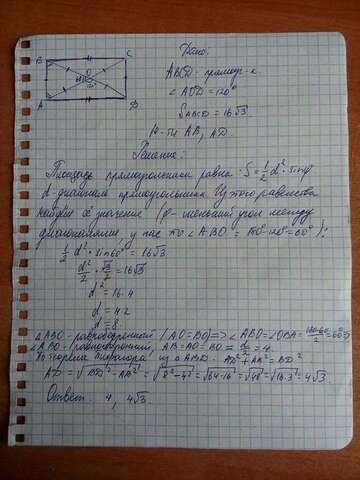 B
C
O
120°
A
D
Дано:
ABCD - прямоуг-к
∠AOD = 120°
S_ABCD = 16√3
Н-ти AB, AD
Решение:
Площадь прямоугольника равна: S = 1/2 d² · sinφ
d - диагонали прямоугольника. Из этого равенства
найдём её значение (φ - меньший угол между
диагоналями, у нас это ∠ABO = 180°-120° = 60°):
1/2 d² · sin60° = 16√3
d²/2 · √3/2 = 16√3
d² = 16·4
d = 4·2
d = 8
∆ABO - равнобедренный (AO=BO) => ∠ABO = ∠OBA = (180-60)/2 = 60° =>
∆ABO - равносторонний AB = AO = BO = d/2 = 4
По теореме Пифагора из ∆ABD: AD² + AB² = BD²
AD = √BD² - AB² = √8² - 4² = √64 - 16 = √48 = √16·3 = 4√3.
Ответ: 4, 4√3.